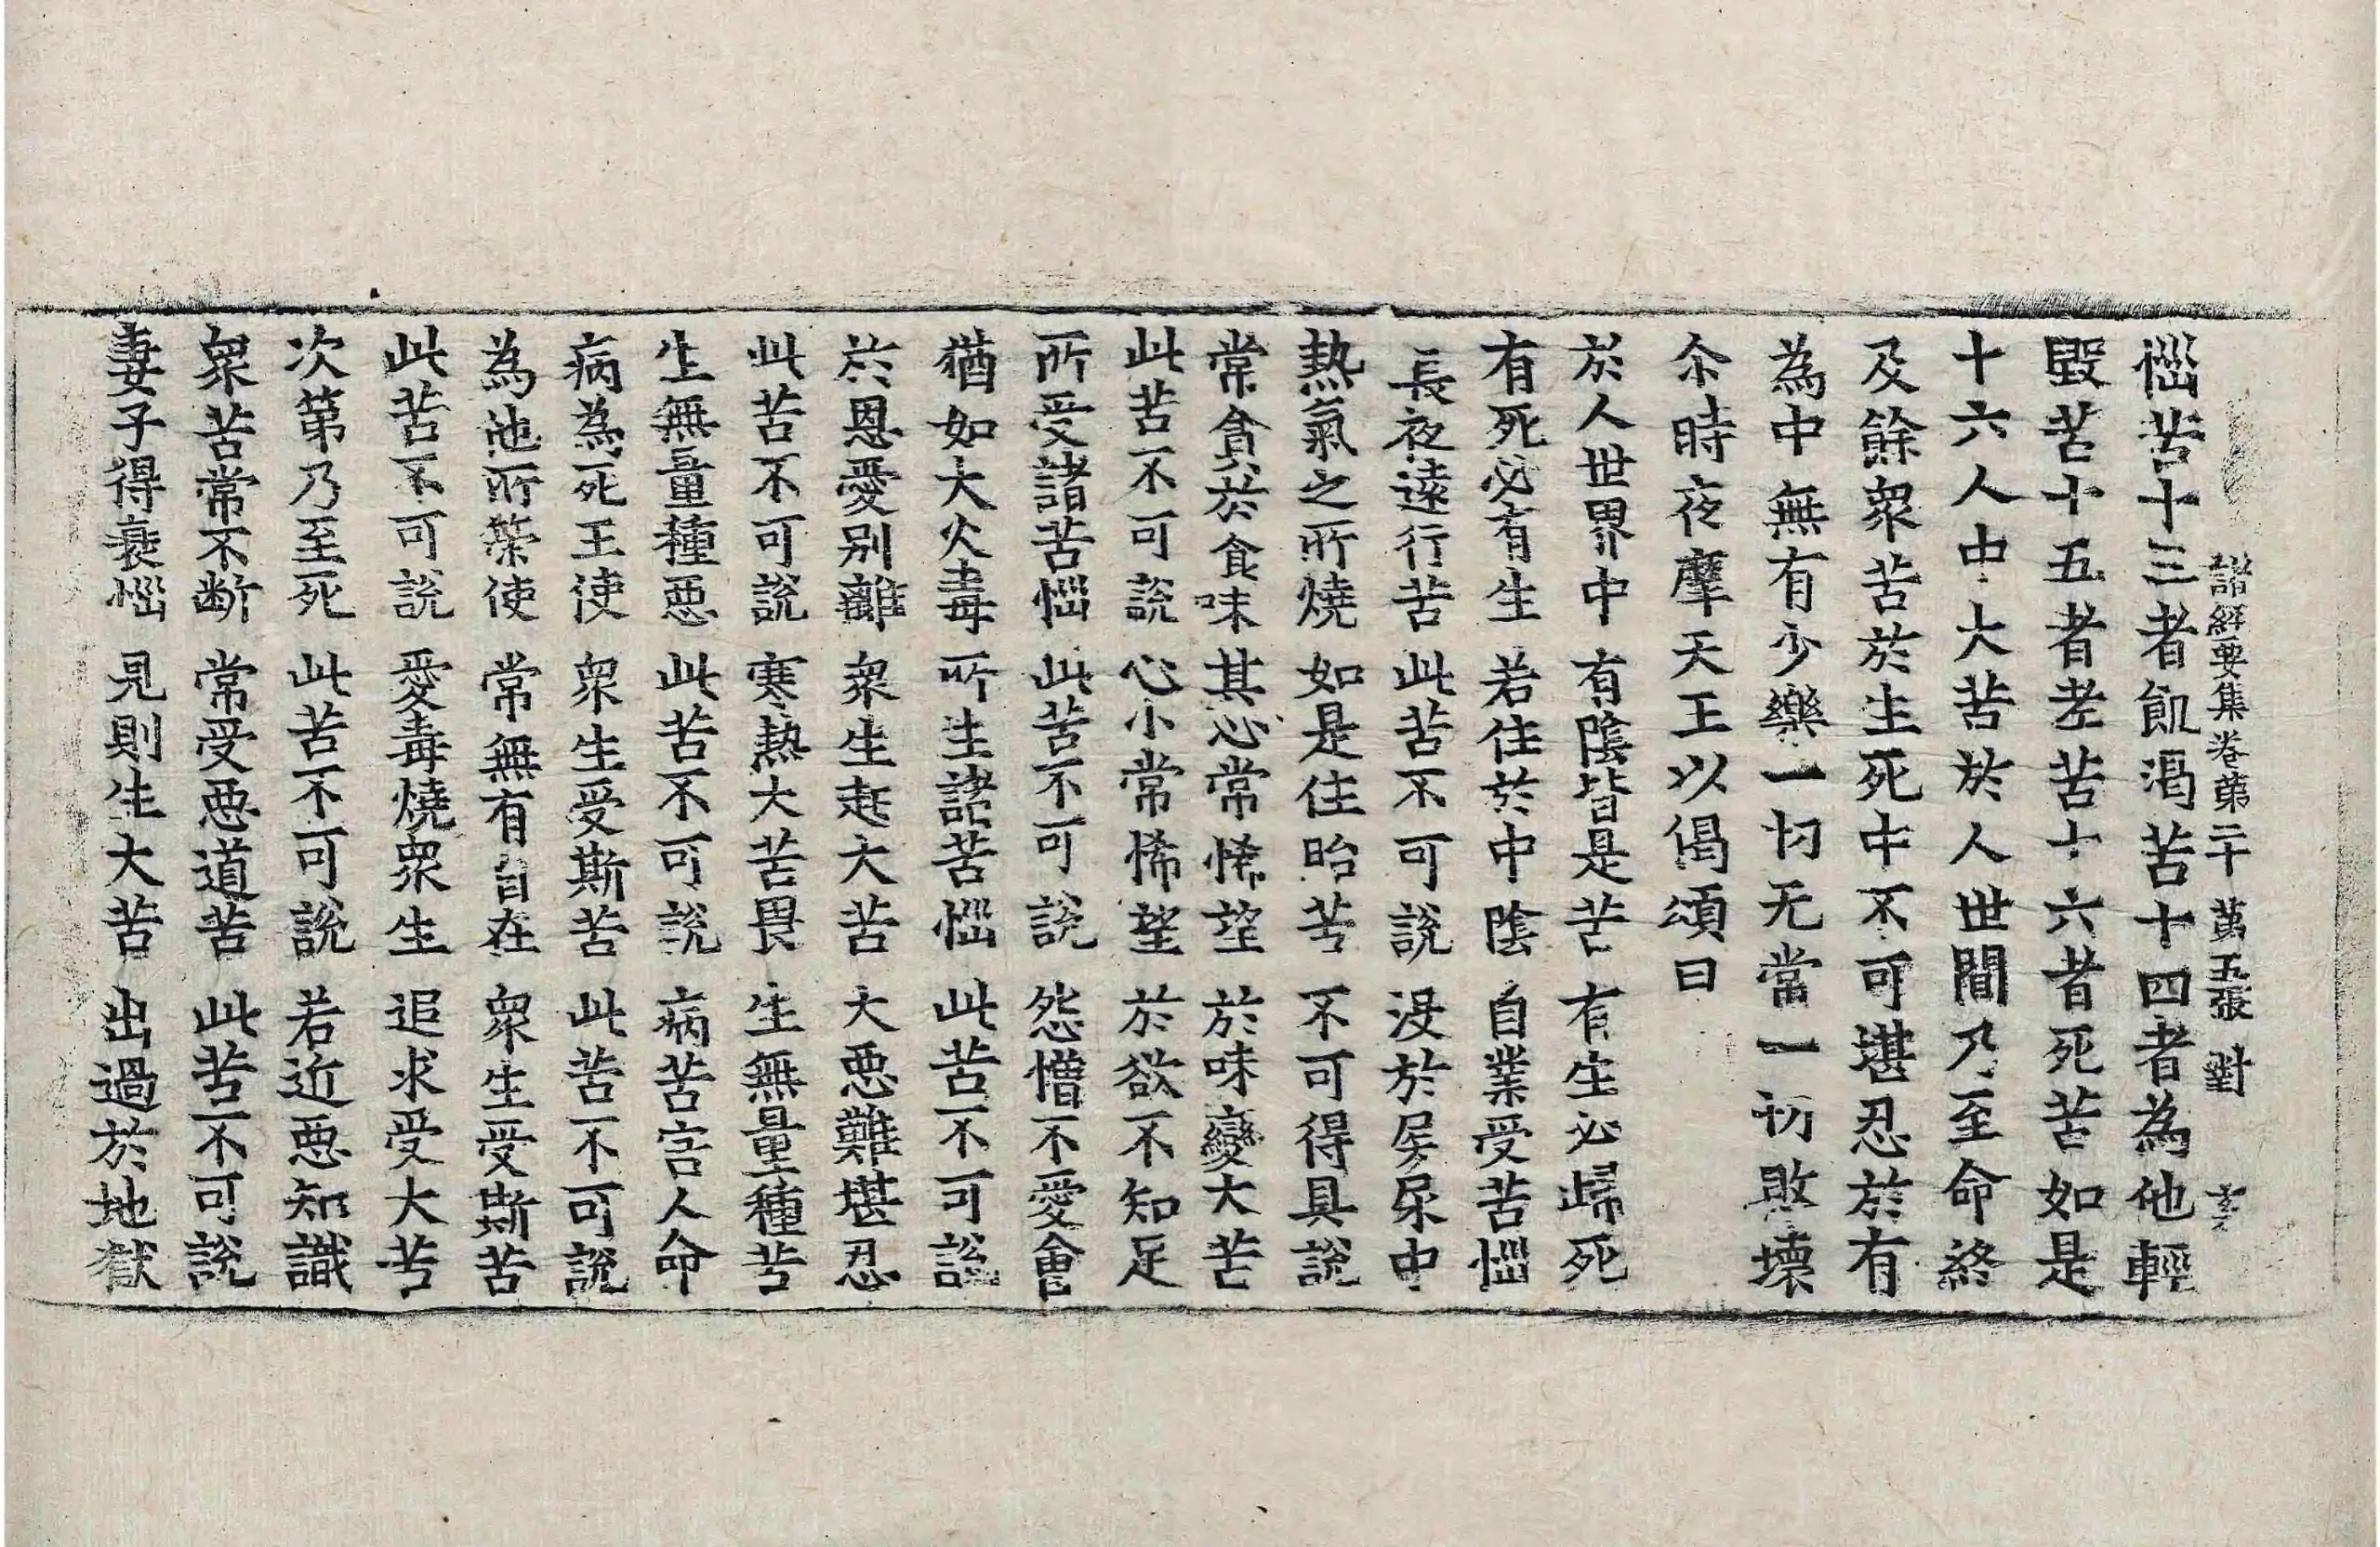 諸經要集卷第二十 第五張 對
惱苦十三者飢渴苦十四者為他輕
毀苦十五者老苦十六者死苦如是
十六人中大苦於人世間乃至命終
及餘衆苦於生死中不可堪忍於有
為中無有少樂一切无常一切敗壞
尒時夜摩天王以偈頌曰
於人世界中 有陰皆是苦 有生必歸死
有死必有生 若住於中陰 自業受苦惱
長夜遠行苦 此苦不可說 沒於屎尿中
熱氣之所燒 如是住胎苦 不可得具說
常貪於食味 其心常悕望 於味變大苦
此苦不可說 心小常悕望 於欲不知足
所受諸苦惱 此苦不可說 怨憎不愛會
猶如大火毒 所生諸苦惱 此苦不可說
於恩愛别離 衆生起大苦 大惡難堪忍
此苦不可說 寒熱大苦畏 生無量種苦
生無量種惡 此苦不可說 病苦害人命
病為死王使 衆生受斯苦 此苦不可說
為他所策使 常無有自在 衆生受斯苦
此苦不可說 愛毒燒衆生 追求受大苦
次第乃至死 此苦不可說 若近惡知識
衆苦常不断 常受惡道苦 此苦不可說
妻子得衰惱 見則生大苦 出過於地獄